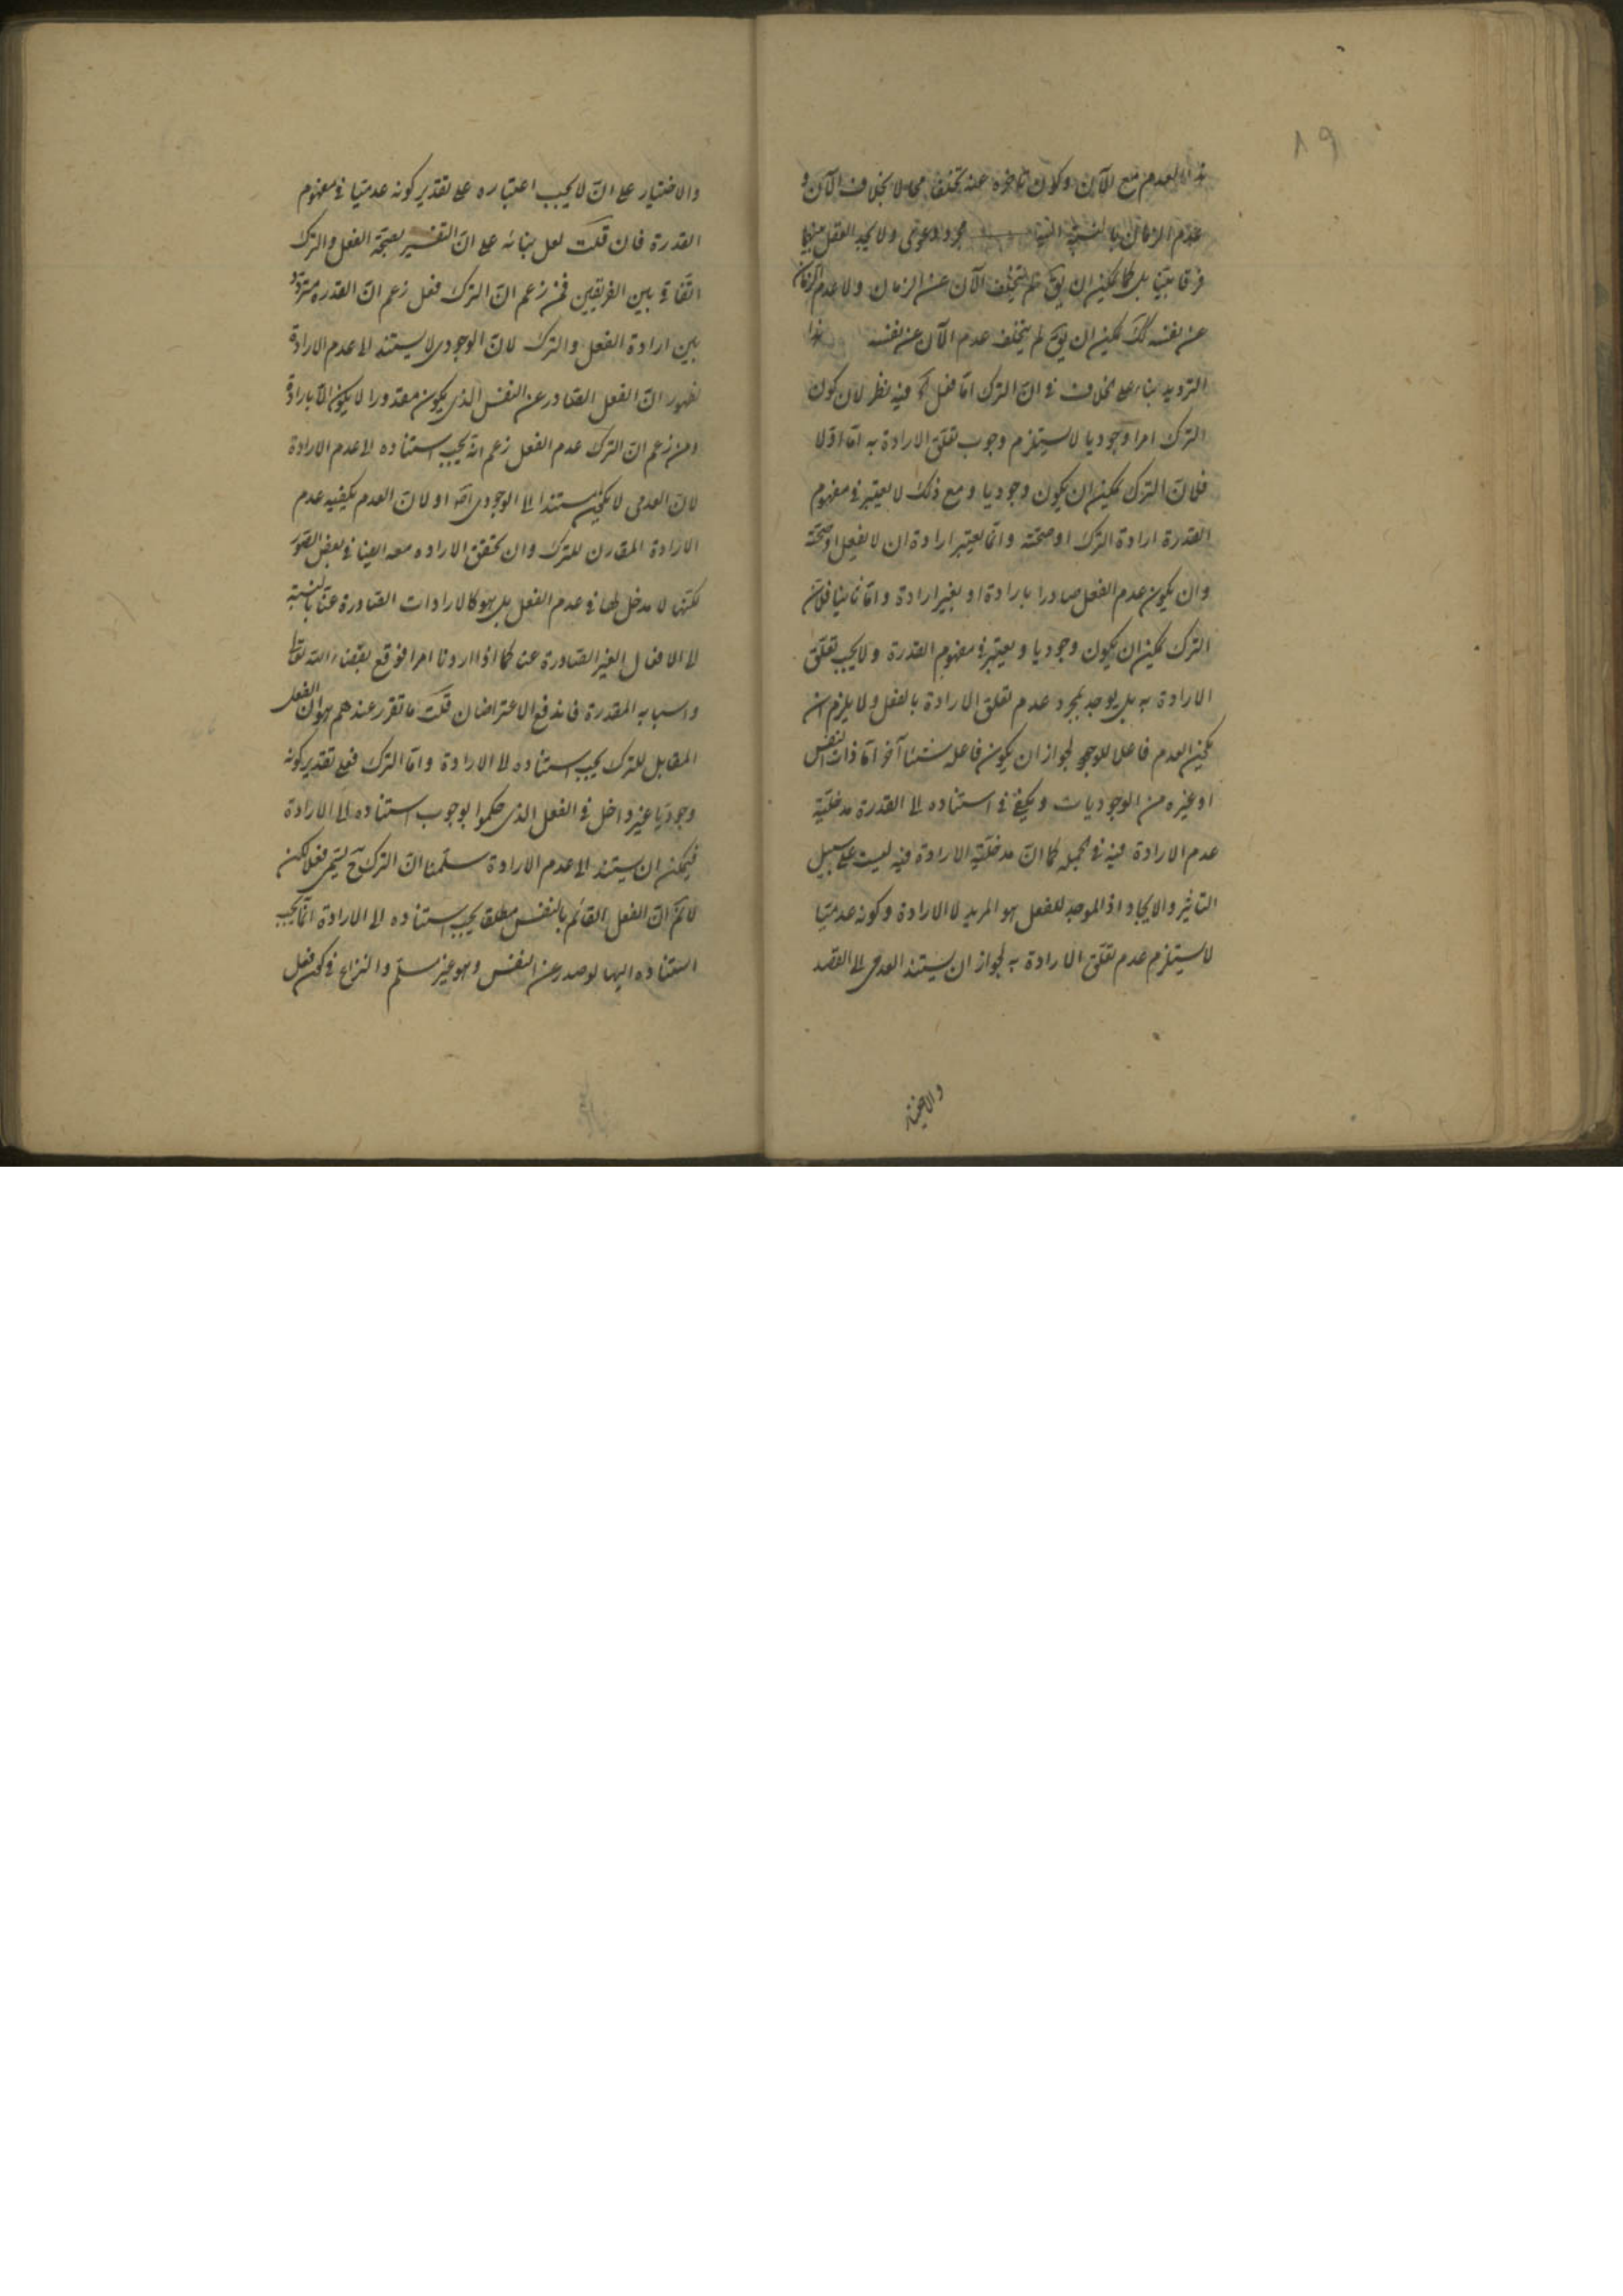 ١٩
العدم مع الآن وكون تأخره عنه تخلفا محالا بخلاف الآن و
عدم الزمان بالنسبة اليه مجرد دعوى ولا يجد العقل بينهما
فرقا بيّنا بل كما يمكن ان يقال لم يتخلف الآن عن الزمان ولا عدم الزمان
عن نفسه كذلك يمكن ان يق لم يتخلف عدم الآن عن نفسه هذا
الترديد بناء على الخلاف في انّ الترك امّا فعل فيه نظر لان كون
الترك امرا وجوديا لا يستلزم وجوب تعلّق الارادة به امّا اوّلا
فلانّ الترك يمكن ان يكون وجوديا ومع ذلك لا يعتبر في مفهوم
القدرة ارادة الترك او صحّته وانّما يعتبر ارادة ان لا يفعل او صحّته
وان يكون عدم الفعل صادرا بارادة او بغير ارادة وامّا ثانيا فلانّ
الترك يمكن ان يكون وجوديا ويعتبر في مفهوم القدرة ولا يجب تعلّق
الارادة به بل يوجد بمجرد عدم تعلق الارادة بالفعل ولا يلزم ان
يكون العدم فاعلا للوجود لجواز ان يكون فاعله شيئا آخر امّا ذات النفس
او غيره من الوجوديات ويكفي في استناده الى القدرة مدخليّة
عدم الارادة فيه في الجملة كما انّ مدخليّة الارادة فيه ليست على سبيل
التاثير والايجاد اذ الموجد للفعل هو المريد لا الارادة وكونه عدميّا
لا يستلزم عدم تعلّق الارادة به لجواز ان يستند العدمي الى القصد
والاختيار
والاختيار على انّه لا يجب اعتباره على تقدير كونه عدميّا في مفهوم
القدرة فان قلت لعل بنائه على انّ التفسير بصحّة الفعل والترك
اتفاقي بين الفريقين فمن زعم انّ الترك فعل زعم انّ القدرة متردّد
بين ارادة الفعل والترك لانّ الوجودي لا يستند الى عدم الارادة
لظهور انّ الفعل الصّادر عن النفس الذي يكون مقدورا لا يكون الّا بارادة
ومن زعم انّ الترك عدم الفعل زعم انّه يجب استناده الى عدم الارادة
لانّ العدمي لا يكون مستندا الى الوجودي اصلا او لانّ العدم يكفيه عدم
الارادة المقارن للترك وان تحقق الارادة معه ايضا في بعض الصّور
لكنّها لا مدخل لها في عدم الفعل بل هو كالارادات الصّادرة عنّا بالنسبة
الى الافعال الغير الصّادرة عنا كما اذا اردنا امرا فوقع بقضاء الله تعالى
واسبابه المقدرة فاندفع الاعتراضان قلت ما تقرر عندهم هو ان الفعل
المقابل للترك يجب استناده الى الارادة وامّا الترك فعلى تقدير كونه
وجوديّا غير داخل في الفعل الذي حكموا بوجوب استناده الى الارادة
فيمكن ان يستند الى عدم الارادة سلّمنا انّ الترك ح يسمّى فعلا لكن
لا نم انّ الفعل القائم بالنفس مطلقا يجب استناده الى الارادة انّما يجب
استناده اليها لو صدر عن النفس وهو غير مسلّم والنزاع في كون فعل